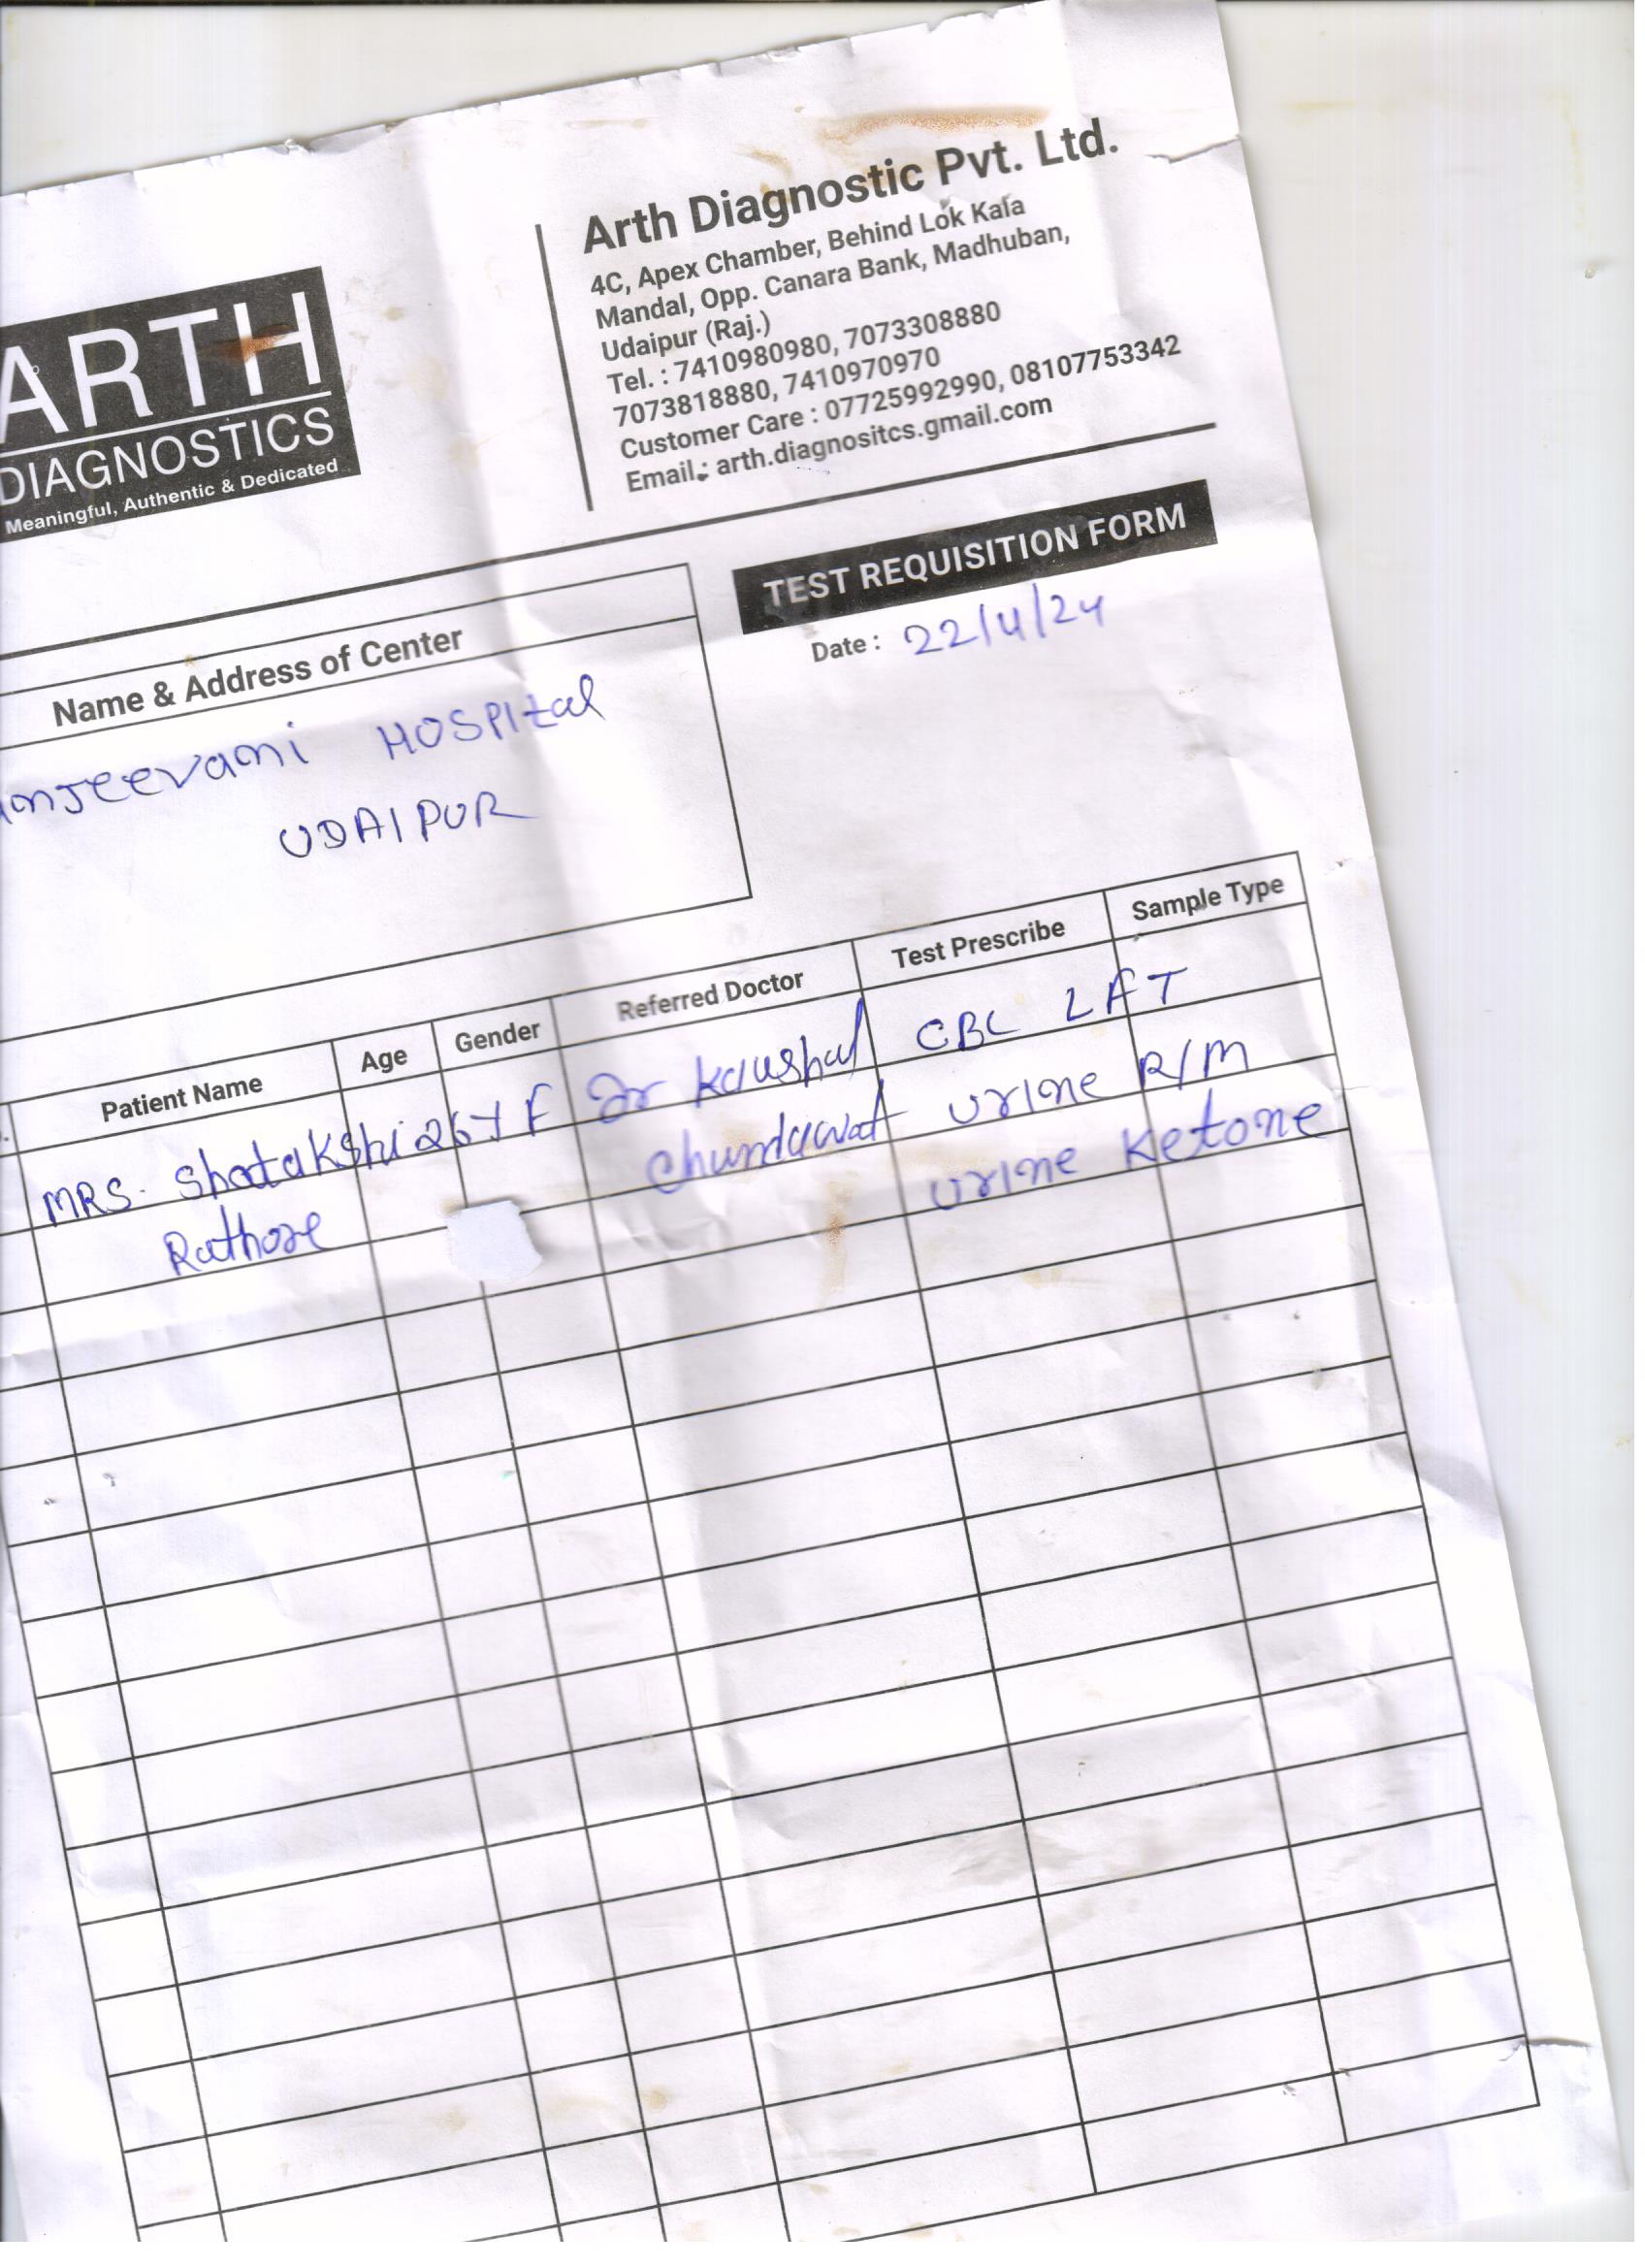 ARTH
DIAGNOSTICS
Meaningful, Authentic & Dedicated
Arth Diagnostic Pvt. Ltd.
4C, Apex Chamber, Behind Lok Kala
Mandal, Opp. Canara Bank, Madhuban,
Udaipur (Raj.)
Tel. : 7410980980, 7073308880
7073818880, 7410970970
Customer Care : 07725992990, 08107753342
Email.: arth.diagnositcs.gmail.com
TEST REQUISITION FORM
Date : 22/4/24
Name & Address of Center
anjeevani HOSPItal
UDAIPUR
Patient Name Age Gender Referred Doctor Test Prescribe Sample Type
MRS. Shatakshi 26 Y F Dr Kaushal CBC LFT
Rathore Chundawat urine R/M
urine Ketone